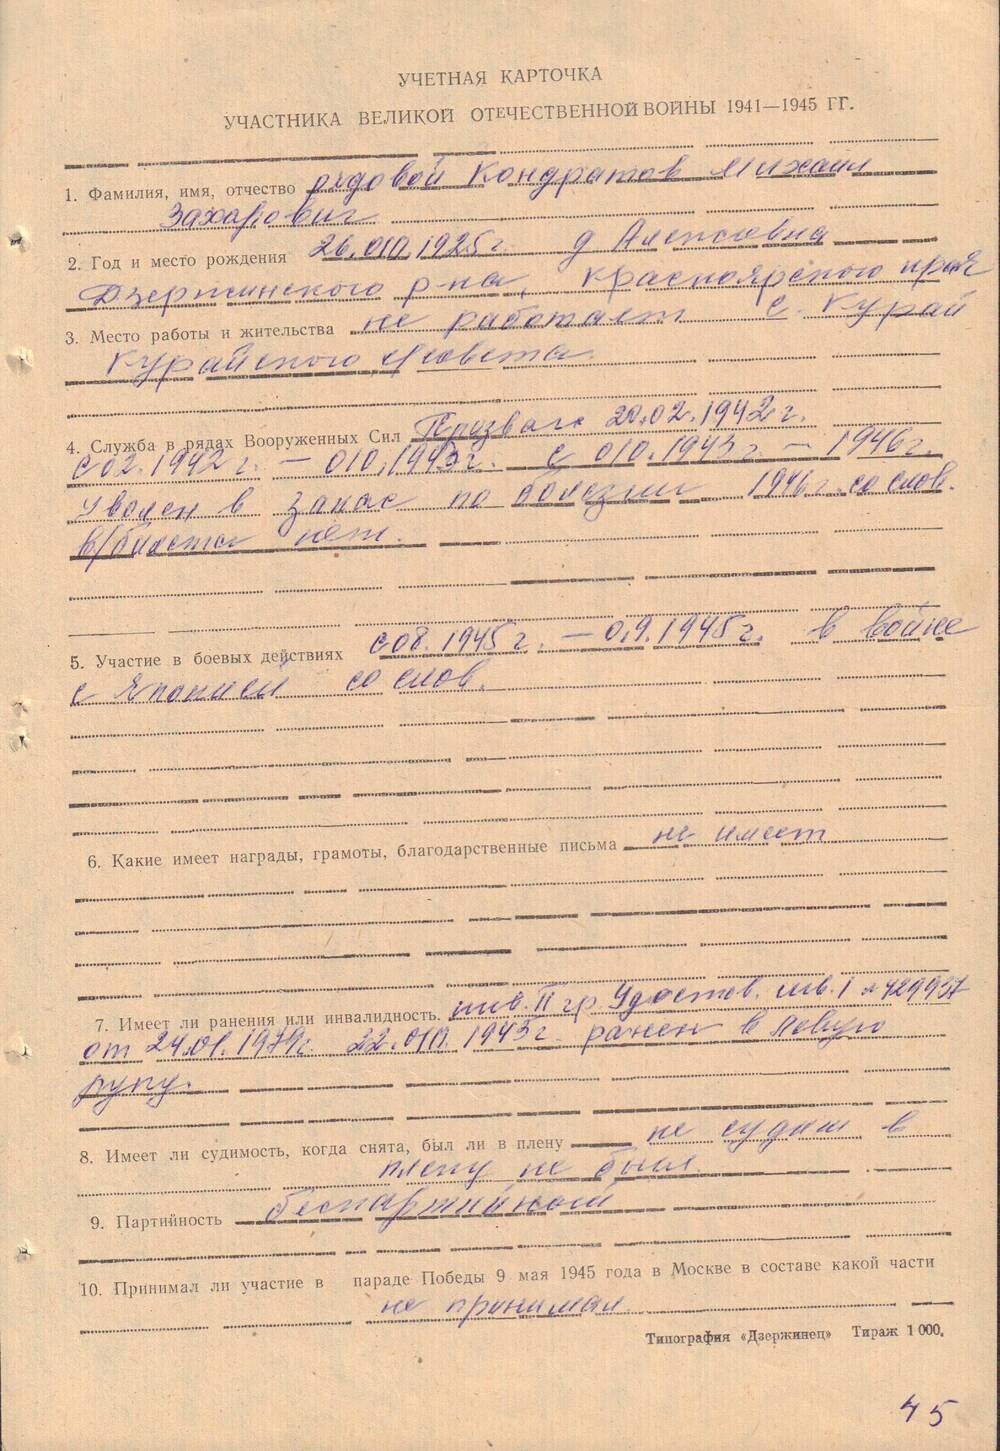 УЧЕТНАЯ КАРТОЧКА
УЧАСТНИКА ВЕЛИКОЙ ОТЕЧЕСТВЕННОЙ ВОЙНЫ 1941—1945 ГГ.
1. Фамилия, имя, отчество рядовой Кондратов Михаил
Захарович
2. Год и место рождения 26.010.1925г. д Алексовна
Дзержинского р-на, Красноярского края
3. Место работы и жительства не работает с. Курай
Курайского с/совета
4. Служба в рядах Вооруженных Сил Призван 20.02.1942г.
с 02.1942г. — 010.1943г. с 010.1943г — 1946г.
уволен в запас по болезни 1946г. со слов.
в/билета нет.
5. Участие в боевых действиях с 08.1945г. — 0.9.1945г. в войне
с Японией со слов.
6. Какие имеет награды, грамоты, благодарственные письма не имеет
7. Имеет ли ранения или инвалидность. инв. II гр. Удостов. инв. I № 429937
от 24.01.1979г. 22.010.1943г. ранен в левую
руку.
8. Имеет ли судимость, когда снята, был ли в плену не судим в
плену не был.
9. Партийность беспартийный
10. Принимал ли участие в параде Победы 9 мая 1945 года в Москве в составе какой части
не принимал
Типография «Дзержинец» Тираж 1 000.
45